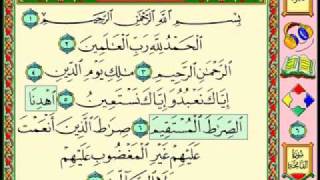 بِسْمِ ٱللَّهِ ٱلرَّحْمَٰنِ ٱلرَّحِيمِ ١
ٱلْحَمْدُ لِلَّهِ رَبِّ ٱلْعَٰلَمِينَ ٢
ٱلرَّحْمَٰنِ ٱلرَّحِيمِ ٣ مَٰلِكِ يَوْمِ ٱلدِّينِ ٤
إِيَّاكَ نَعْبُدُ وَإِيَّاكَ نَسْتَعِينُ ٥ ٱهْدِنَا
ٱلصِّرَٰطَ ٱلْمُسْتَقِيمَ ٦ صِرَٰطَ ٱلَّذِينَ أَنْعَمْتَ
عَلَيْهِمْ غَيْرِ ٱلْمَغْضُوبِ عَلَيْهِمْ
سورة
الفاتحة